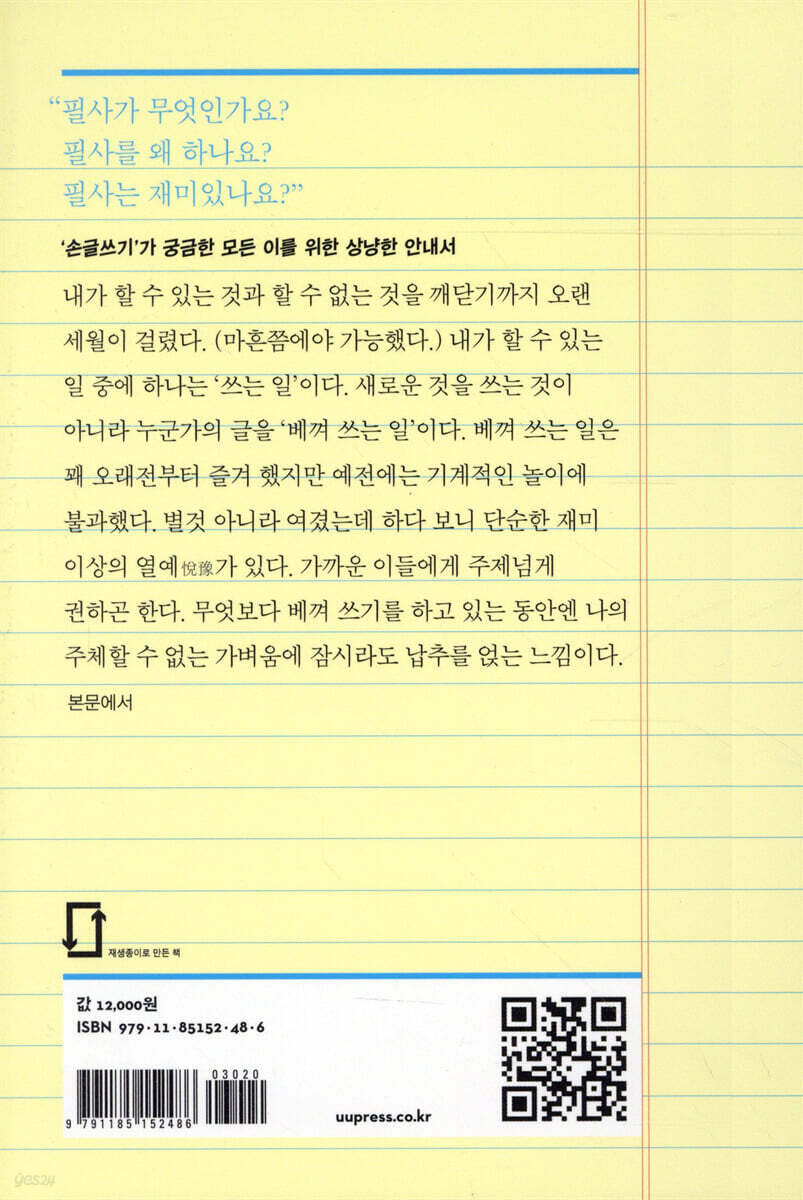 “필사가 무엇인가요?
필사를 왜 하나요?
필사는 재미있나요?”
‘손글쓰기’가 궁금한 모든 이를 위한 상냥한 안내서
내가 할 수 있는 것과 할 수 없는 것을 깨닫기까지 오랜
세월이 걸렸다. (마흔쯤에야 가능했다.) 내가 할 수 있는
일 중에 하나는 ‘쓰는 일’이다. 새로운 것을 쓰는 것이
아니라 누군가의 글을 ‘베껴 쓰는 일’이다. 베껴 쓰는 일은
꽤 오래전부터 즐겨 했지만 예전에는 기계적인 놀이에
불과했다. 별것 아니라 여겼는데 하다 보니 단순한 재미
이상의 열예悅豫가 있다. 가까운 이들에게 주제넘게
권하곤 한다. 무엇보다 베껴 쓰기를 하고 있는 동안엔 나의
주체할 수 없는 가벼움에 잠시라도 납추를 얹는 느낌이다.
본문에서
재생종이로 만든 책
값 12,000원
ISBN 979·11·85152·48·6
03020
9 791185 152486
uupress.co.kr
yes24